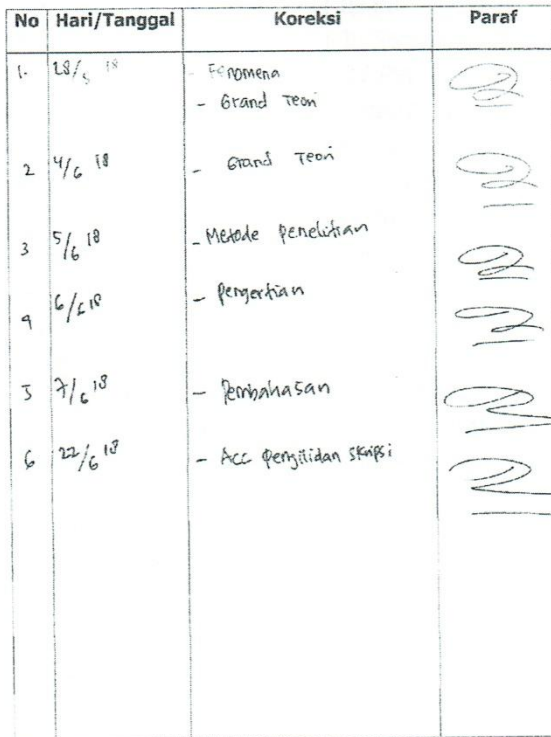 No Hari/Tanggal Koreksi Paraf
1. 28/5 18 - Fenomena
- Grand Teori
2 4/6 18 - Grand Teori
3 5/6 18 - Metode Penelitian
4 6/6 18 - Pengertian
5 7/6 18 - Pembahasan
6 22/6 18 - Acc Penjilidan Skripsi